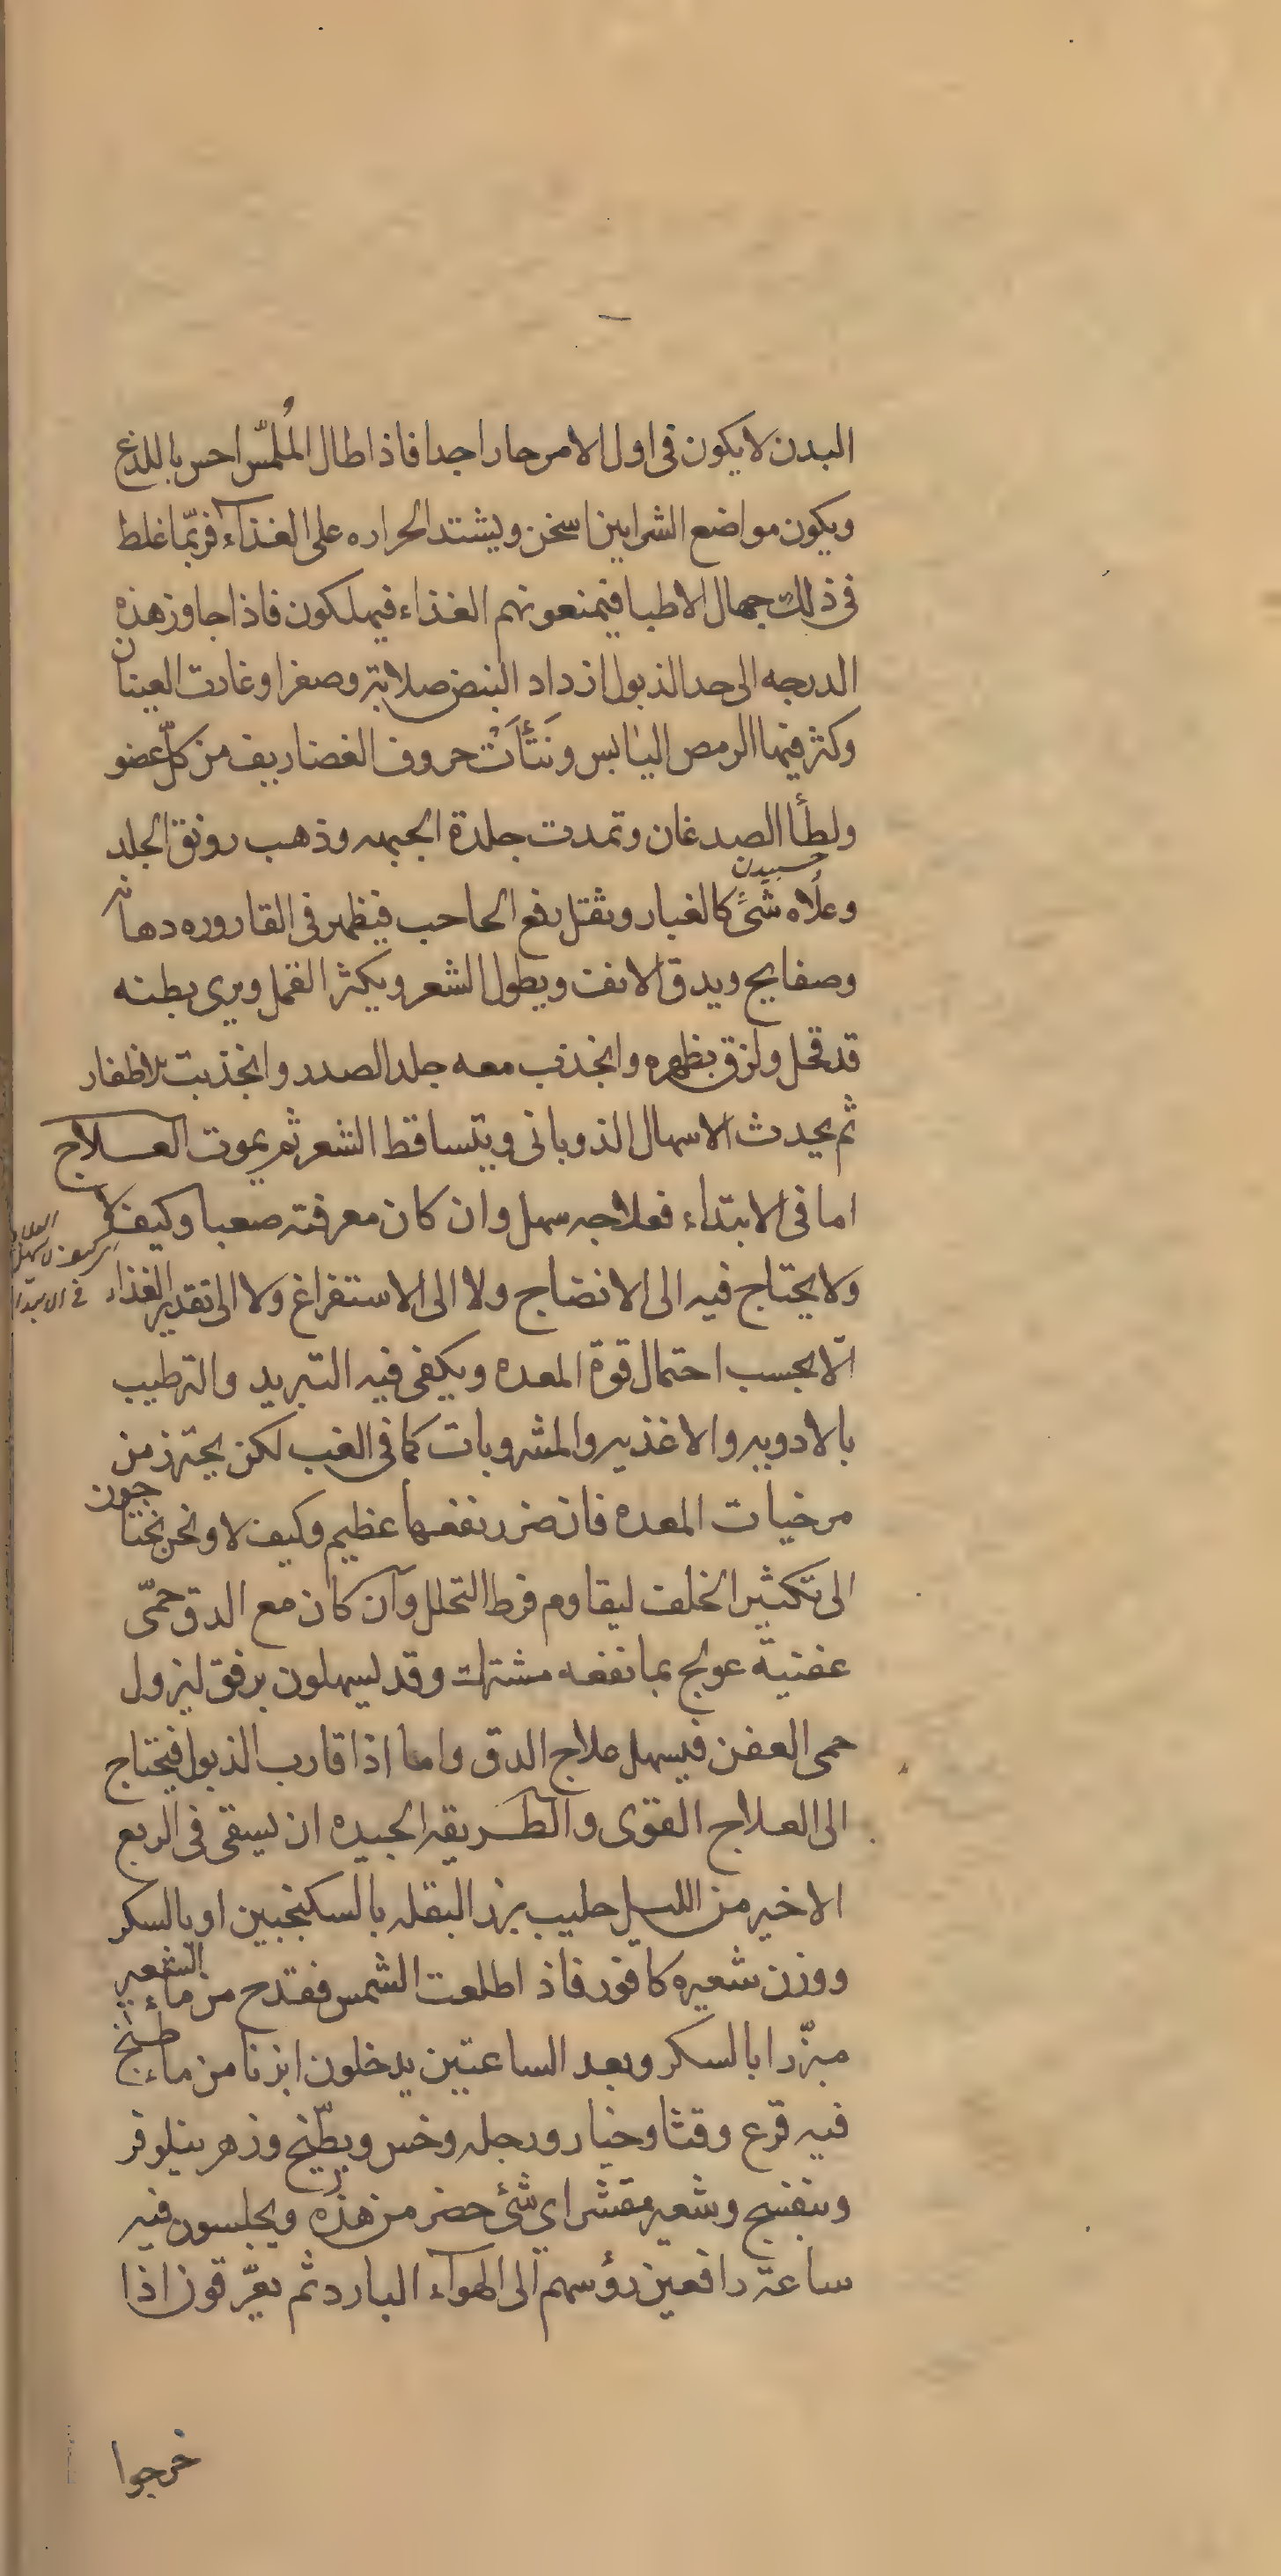 البدن لا يكون فى اول الامر حارا جدا فاذا طال المُلمّس احس باللدغ
ويكون مواضع الشرايين اسخن ويشتد الحراره على الغذاء فربّما غلط
فى ذلك جهال الاطبا فيمنعونهم الغذاء فيهلكون فاذا جاوز هذه
الدرجه الى حد الذبول ازداد النبض صلابة وصغرا وغارت العينان
وكثر فيهما الرمص اليابس ونَتَأَتْ حروف الغضاريف من كلّ عضو
ولطأ الصدغان وتمدت جلدة الجبهه وذهب رونق الجلد
وعلاه شىً كالغبار ويثقل رفع الحاجب فيظهر فى القاروره دهانه
وصفايح ويدق الانف ويطول الشعر ويكثر القمل ويرى بطنه
قد قحل ولزق بظهره وانجذب معه جلد الصدر وانجذبت الاظفار
ثم يحدث الاسهال الذوبانى ويتساقط الشعر ثم يموت العلاج
اما فى الابتداء فعلاجه سهل وان كان معرفته صعبا وكيف لا
ولا يحتاج فيه الى الانضاج ولا الى الاستفراغ ولا الى تقدير الغذاء
الّا بحسب احتمال قوة المعده ويكفى فيه التبريد والترطيب
بالادويه والاغذيه والمشروبات كما فى الغب لكن يحترز من
مرخيات المعده فان ضرر نفعها عظيم وكيف لا ونحن نحتاجون
الى تكثير الخلف ليقاوم فرط التحلل وان كان مع الدق حمّى
عفنية عولج بما نفعه مشترك وقد يسهلون برفق ليزول
حمى العفن فيسهل علاج الدق واما اذا قارب الذبول فيحتاج
الى العلاج القوى والطريقه الجيده ان يسقى فى الربع
الاخير من الليل حليب بزر البقله بالسكنجبين او بالسكر
ووزن شعيره كافور فاذا طلعت الشمس فقدح من ماء الشعير
مبزّرا بالسكر وبعد الساعتين يدخلون ابزنا من ماء طبخ
فيه قرع وقثا وخيار ورجله وخس وبطّيخ وزهر نيلوفر
وبنفسج وشعير مقشر اي شئ حضر من هذه ويجلسون فيه
ساعة رافعين رؤسهم الى الهواء البارد ثم يعرّقون اذا
خرجوا